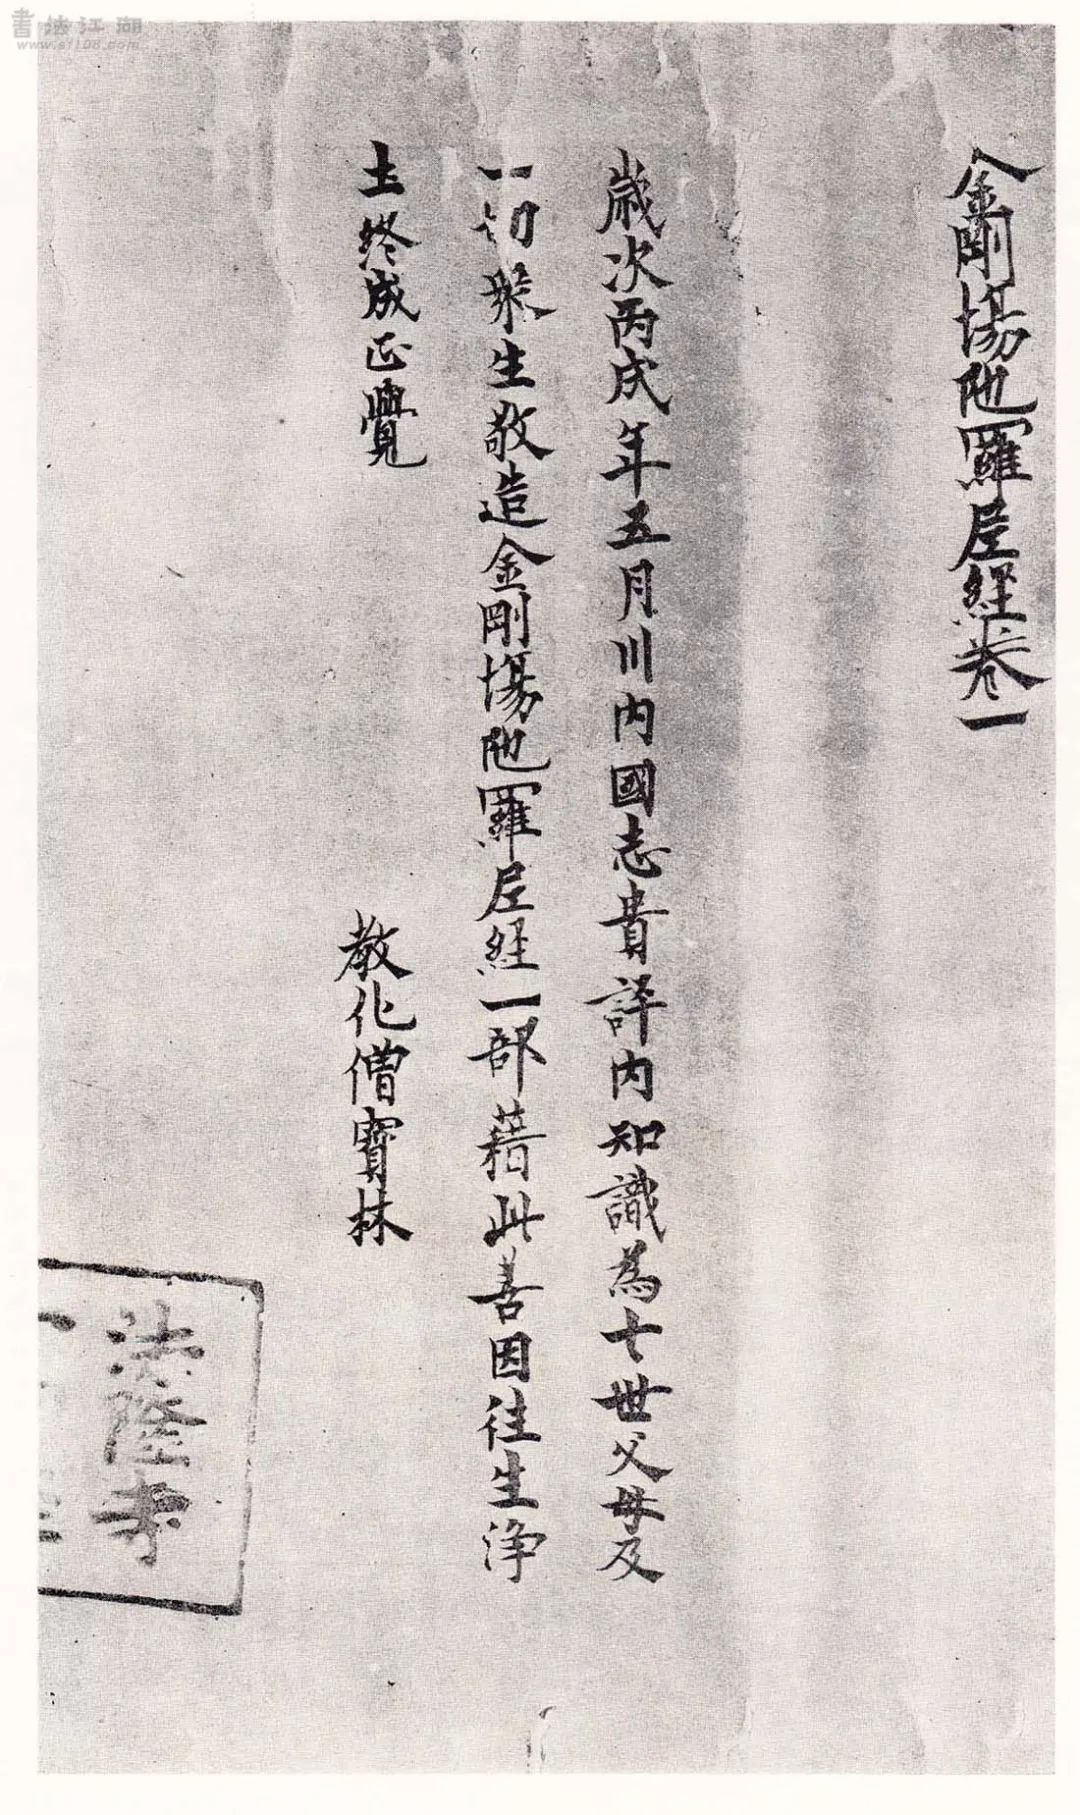 書法江湖
www.sf108.com
金剛場陁羅尼經卷一
歲次丙戌年五月川內國志貴評內知識為七世父母及
一切眾生敬造金剛場陁羅尼經一部藉此善因往生淨
土終成正覺
教化僧寶林
法隆寺
一